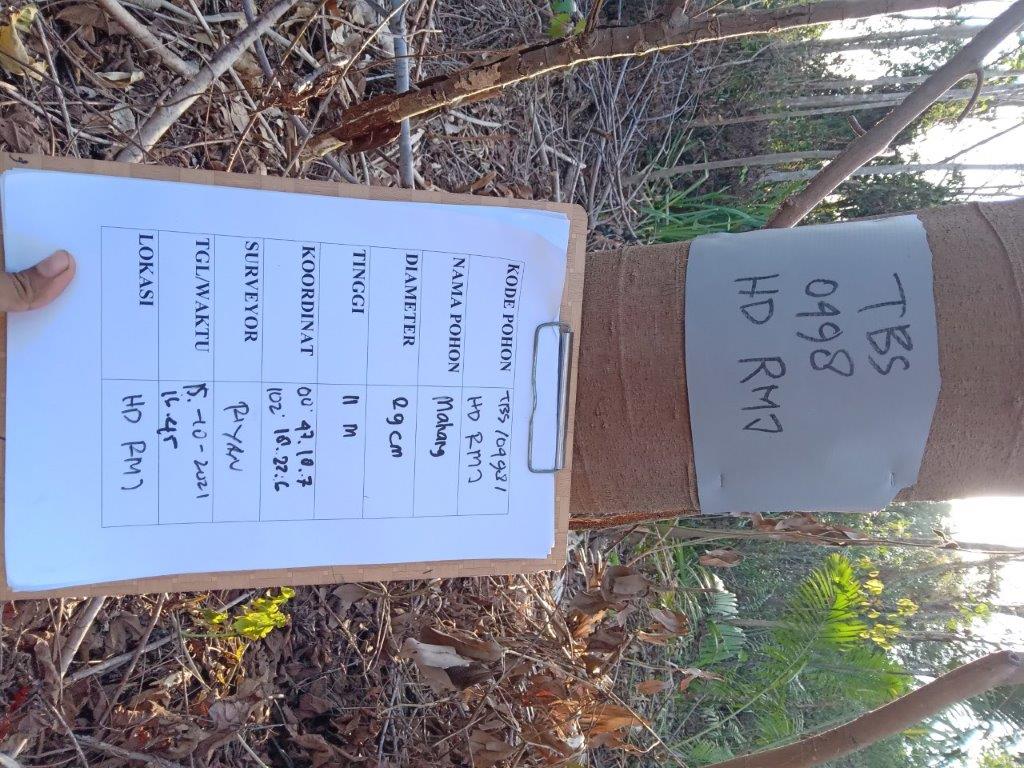 TBS
0498
HD RMJ
KODE POHON TBS /0498/
HD RMJ
NAMA POHON Mahang
DIAMETER 29 cm
TINGGI 11 M
KOORDINAT 00° 47.18.7
102° 18.22.6
SURVEYOR RIYAN
TGL/WAKTU 15.-10-2021
16.45
LOKASI HD RMJ